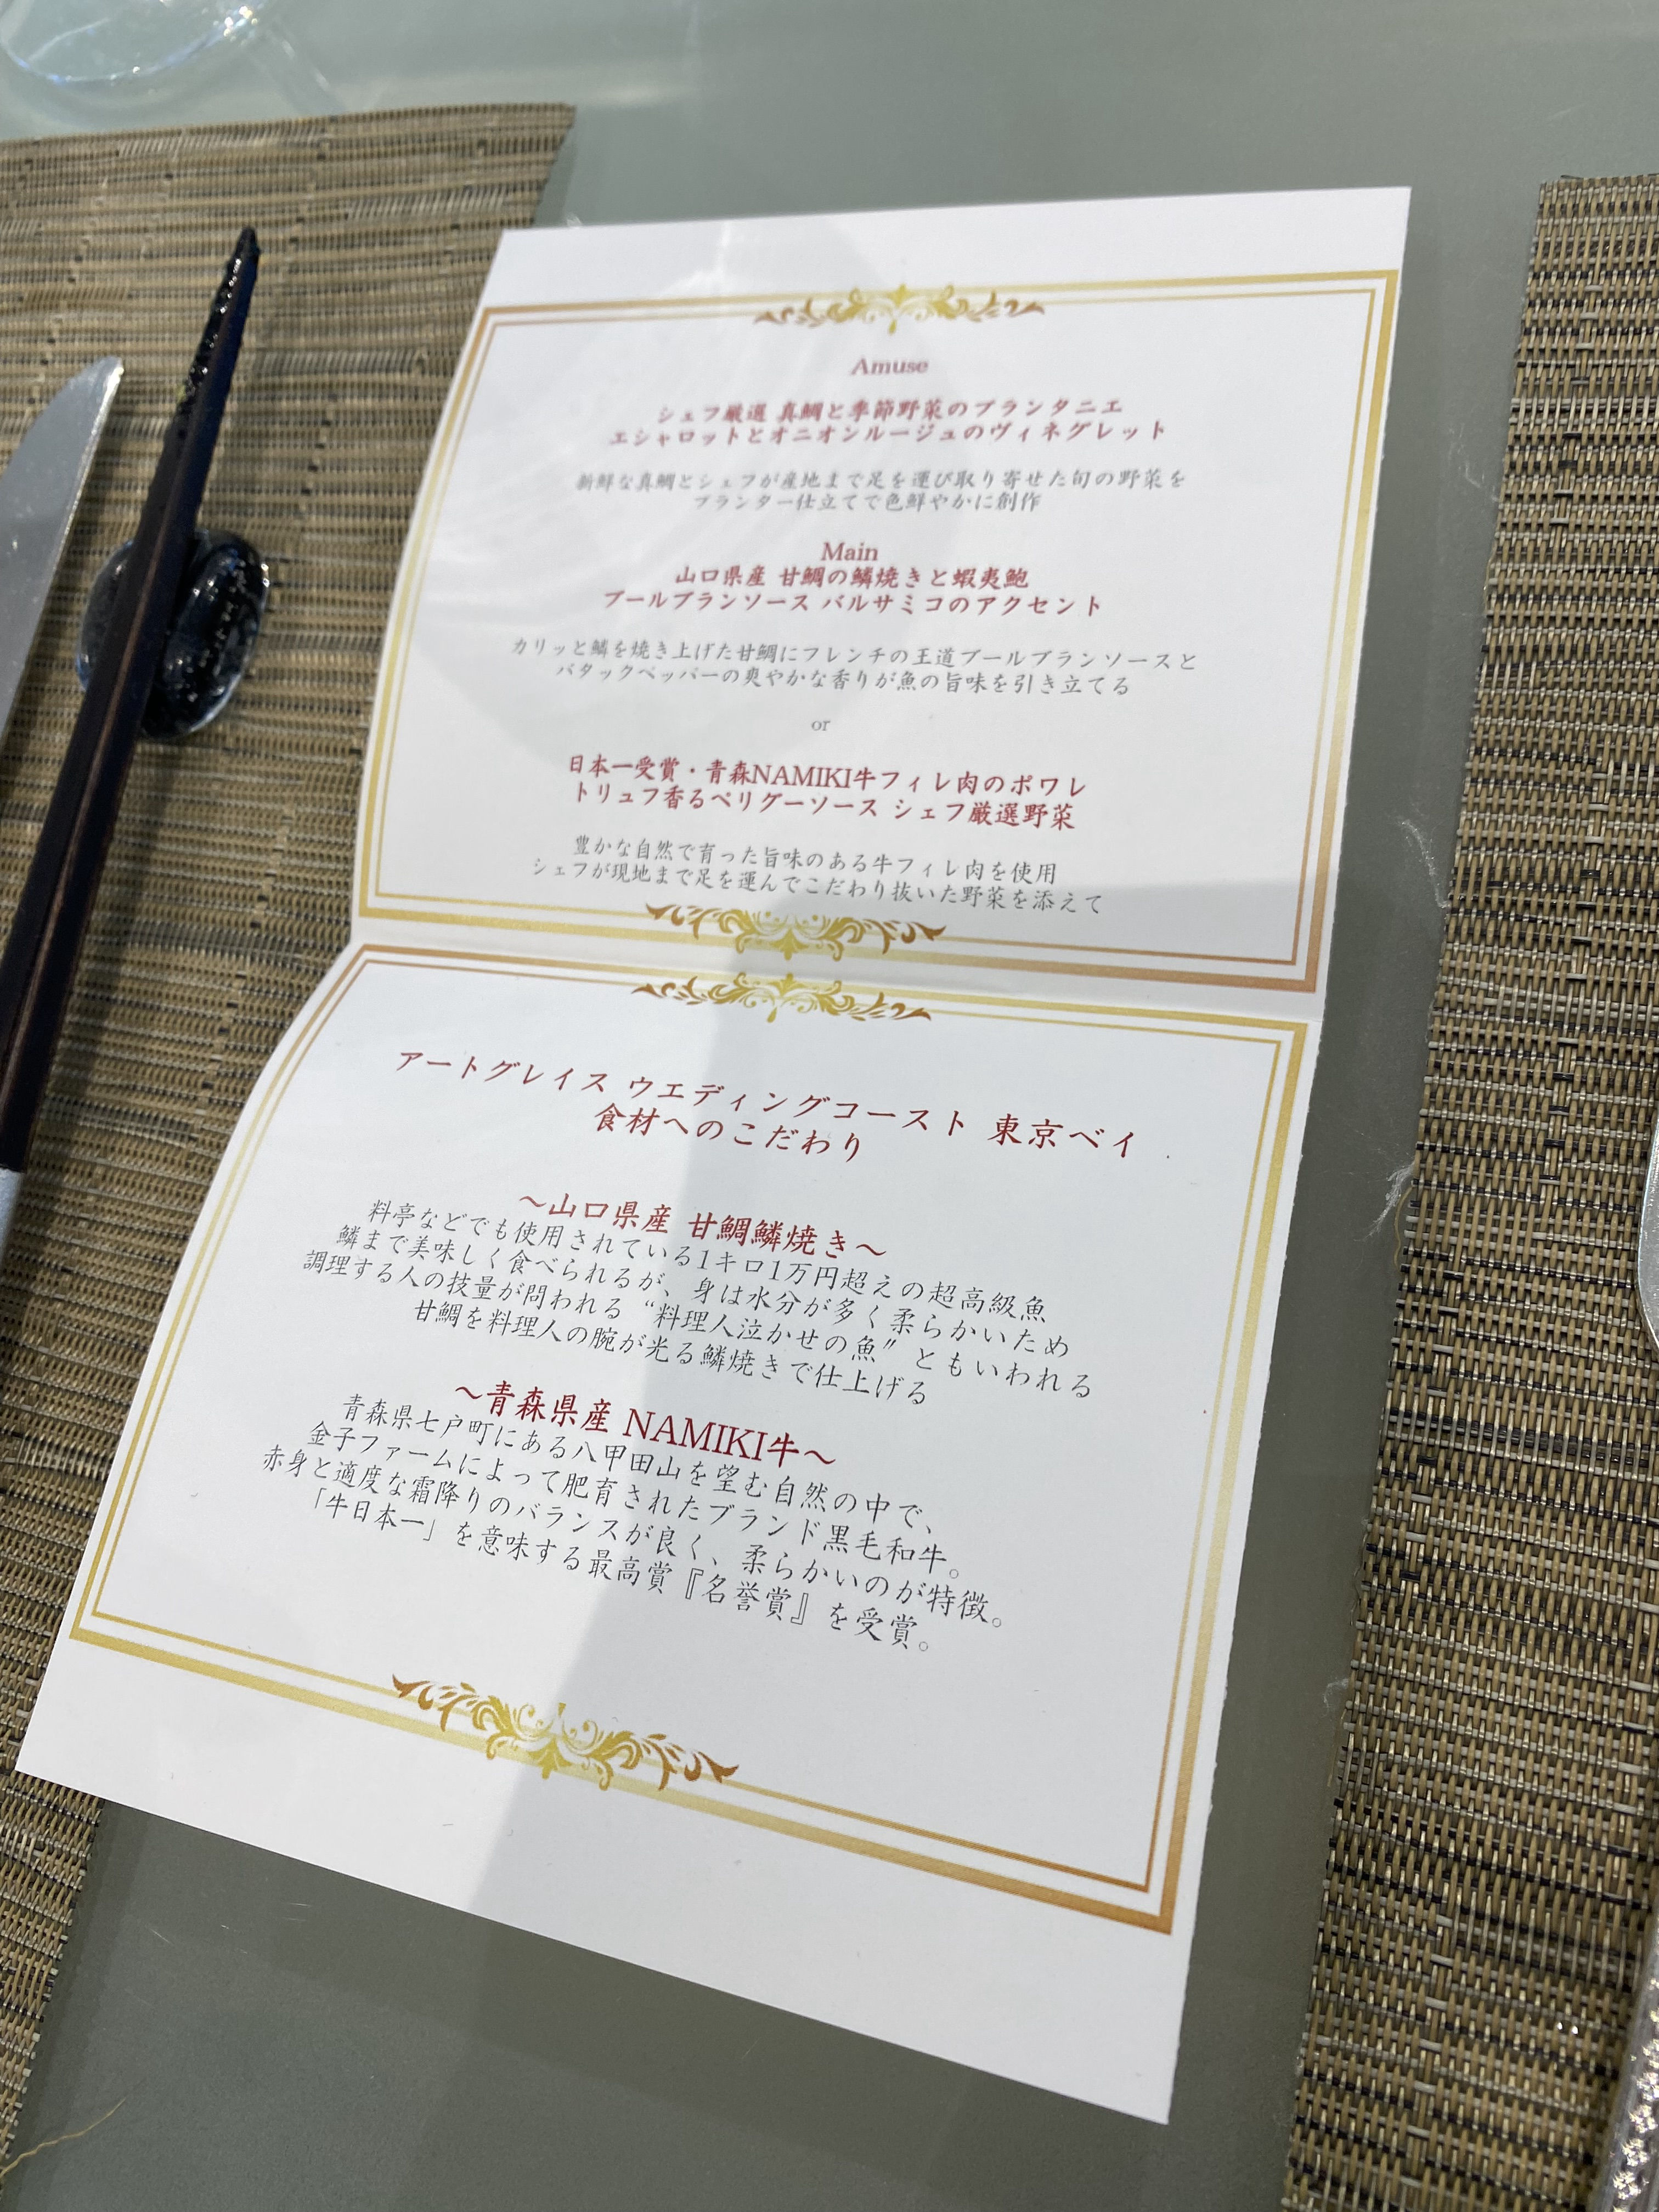 Amuse
シェフ厳選 真鯛と季節野菜のプランタニエ
エシャロットとオニオンルージュのヴィネグレット
新鮮な真鯛とシェフが産地まで足を運び取り寄せた旬の野菜を
プランター仕立てで色鮮やかに創作
Main
山口県産 甘鯛の鱗焼きと蝦夷鮑
ブールブランソース バルサミコのアクセント
カリッと鱗を焼き上げた甘鯛にフレンチの王道ブールブランソースと
バタックペッパーの爽やかな香りが魚の旨味を引き立てる
or
日本一受賞・青森NAMIKI牛フィレ肉のポワレ
トリュフ香るペリグーソース シェフ厳選野菜
豊かな自然で育った旨味のある牛フィレ肉を使用
シェフが現地まで足を運んでこだわり抜いた野菜を添えて
アートグレイス ウエディングコースト 東京ベイ
食材へのこだわり
～山口県産 甘鯛鱗焼き～
料亭などでも使用されている1キロ1万円超えの超高級魚
鱗まで美味しく食べられるが、身は水分が多く柔らかいため
調理する人の技量が問われる“料理人泣かせの魚”ともいわれる
甘鯛を料理人の腕が光る鱗焼きで仕上げる
～青森県産 NAMIKI牛～
青森県七戸町にある八甲田山を望む自然の中で、
金子ファームによって肥育されたブランド黒毛和牛。
赤身と適度な霜降りのバランスが良く、柔らかいのが特徴。
「牛日本一」を意味する最高賞『名誉賞』を受賞。